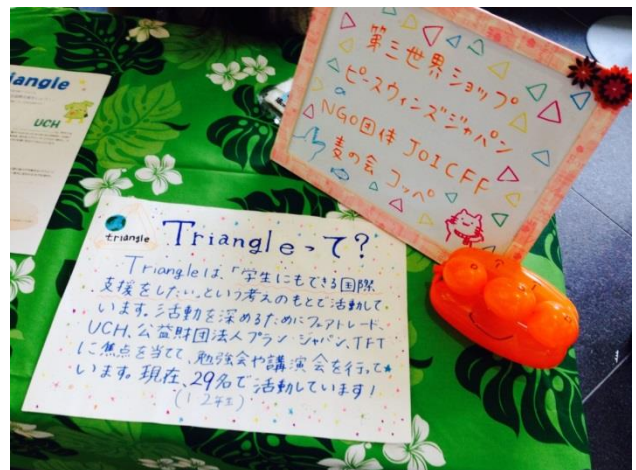 iangle
UCH
第三世界ショップ
ピースウィンズジャパン
の
NGO団体 JOICFF
麦の会 コッペ
triangle
Triangleって?
Triangleは、「学生にもできる国際
支援をしたい」という考えのもとで活動して
います。活動を深めるためにフェアトレード、
UCH、公益財団法人プラン・ジャパン、TFT
に焦点を当てて、勉強会や講演会を行って
います。現在、29名で活動しています!
(1・2年生)